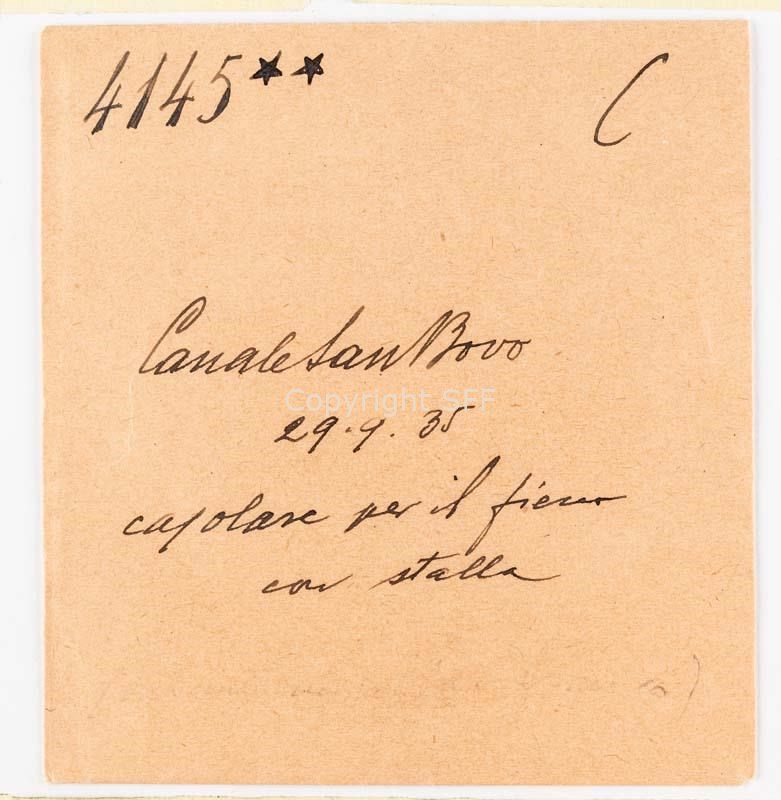 4145** C
Canale San Bovo
Copyright SFF
29.9.35
casolare per il fieno
con stalla